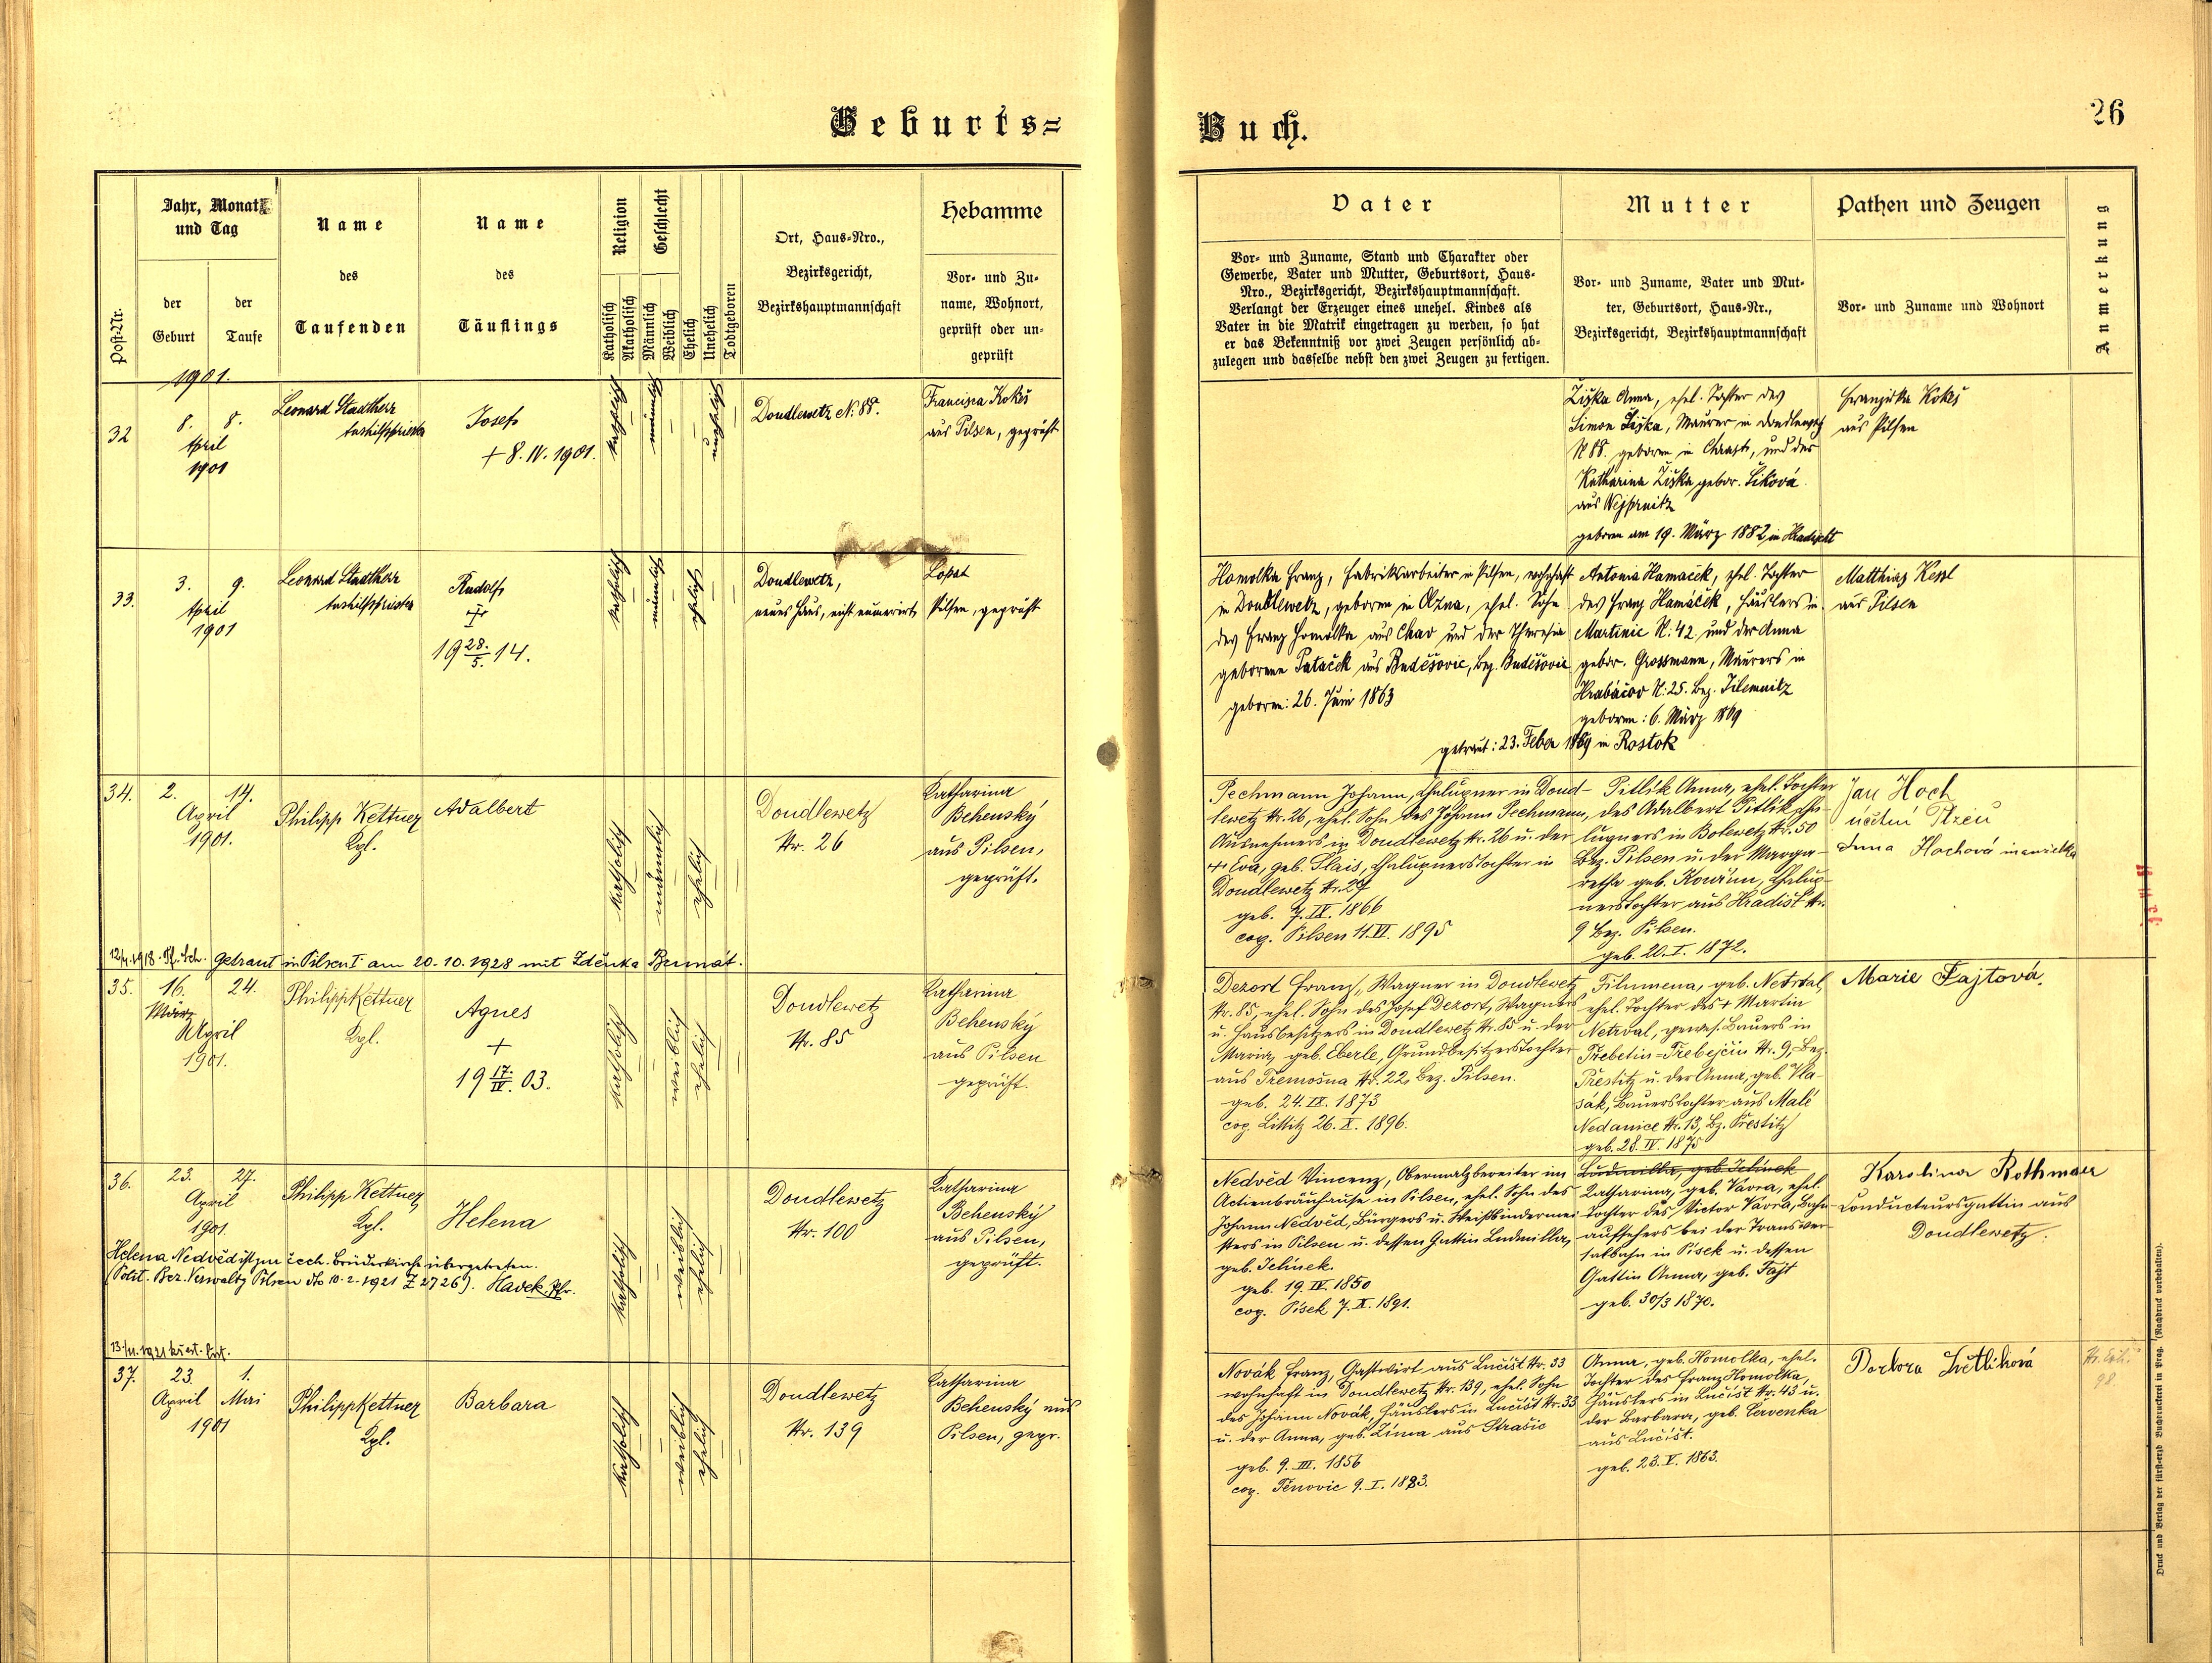 Geburts=
Buch.
26
Post-Nr.
Jahr, Monat
und Tag
der
Geburt
der
Taufe
Name
des
Taufenden
Name
des
Täuflings
Religion
Katholisch
Akatholisch
Geschlecht
Männlich
Weiblich
Ehelich
Unehelich
Todtgeboren
Ort, Haus-Nro.,
Bezirksgericht,
Bezirkshauptmannschaft
Hebamme
Vor- und Zu-
name, Wohnort,
geprüft oder un-
geprüft
Vater
Vor- und Zuname, Stand und Charakter oder
Gewerbe, Vater und Mutter, Geburtsort, Haus-
Nro., Bezirksgericht, Bezirkshauptmannschaft.
Verlangt der Erzeuger eines unehel. Kindes als
Vater in die Matrik eingetragen zu werden, so hat
er das Bekenntniß vor zwei Zeugen persönlich ab-
zulegen und dasselbe nebst den zwei Zeugen zu fertigen.
Mutter
Vor- und Zuname, Vater und Mut-
ter, Geburtsort, Haus-Nr.,
Bezirksgericht, Bezirkshauptmannschaft
Pathen und Zeugen
Vor- und Zuname und Wohnort
Anmerkung
1901.
32
8. 8.
April
1901
Leonard Stadtherr
Aushilfspriester
Josef
+ 8. IV. 1901.
katholisch
männlich
unehelich
Doudlewetz N: 88.
Francisca Kokeš
aus Pilsen, geprüft
Žižka Anna, ehel. Tochter des
Simon Žižka, Maurer in Doudlewetz
N 88. geboren in Chrast, und der
Katharina Žižka gebor. Šiková
aus Wejprnitz
geboren am 19. März 1882 in Hradischt
Franziska Kokeš
aus Pilsen
33.
3. 9.
April
1901
Leonard Stadtherr
Aushilfspriester
Rudolf
+
19 28./5. 14.
katholisch
männlich
ehelich
Doudlewetz,
neues Haus, nicht numerirt
Lopat
Pilsen, geprüft
Homolka Franz, Fabriksarbeiter in Pilsen, wohnhaft
in Doudlewetz, geboren in Olzna, ehel. Sohn
des Franz Homolka aus Chao und der Theresia
geborene Pataček aus Buděšovic, Bez. Buděšovic
geboren: 26. Juni 1863
Antonia Hamaček, ehel. Tochter
des Franz Hamáček, Häuslers in
Martinic N: 42. und der Anna
gebor. Grossmann, Maurers in
Hrabačov N: 25. Bez. Jilemnitz
geboren: 6. März 1869
getraut: 23. Feber 1889 in Rostok
Matthias Kessl
aus Pilsen
34.
2. 14.
April
1901.
Philipp Kettner
Kpl.
Adalbert
katholisch
männlich
ehelich
Doudlewetz
Nr. 26
Katharina
Behenský
aus Pilsen,
geprüft.
Pechmann Johann, Chalupner in Doud-
lewetz Nr. 26, ehel. Sohn des Johann Pechmann,
Ausnehmers in Doudlewetz Nr. 26 u. der
+ Eva, geb. Slais, Chalupnerstochter in
Doudlewetz Nr. 27
geb. 7. IX. 1866
cop. Pilsen 11. VI. 1895
Pitlík Anna, ehel. Tochter
des Adalbert Pitlik, Cha-
lupners in Bolewetz Nr. 50
Bez. Pilsen u. der Marga-
retha geb. Kowinn, Chalup-
nerstochter aus Hradišt Nr.
9 Bez. Pilsen.
geb. 20. I. 1872.
Jan Hoch
úřední Plzeň
Anna Hochová manželka
Getraut in Pilsen I am 20. 10. 1928 mit Zděnka
35.
16. 24.
März
April
1901.
Philipp Kettner
Kpl.
Agnes
+
19 17./IV. 03.
katholisch
weiblich
ehelich
Doudlewetz
Nr. 85
Katharina
Behenský
aus Pilsen
geprüft.
Dezort Franz, Wagner in Doudlewetz
Nr. 85, ehel. Sohn des Josef Dezort, Wagners
u. Hausbesitzers in Doudlewetz Nr. 85 u. der
Maria, geb. Eberle, Grundbesitzerstochter
aus Třemošna Nr. 22, Bez. Pilsen.
geb. 24. IX. 1873
cop. Littitz 26. X. 1896.
Filumena, geb. Netrval,
ehel. Tochter des + Martin
Netrval, gewes. Bauers in
Přebetin=Třebejčin Nr. 9, Bez.
Přestitz u. der Anna, geb. Vla-
sák, Bauerstochter aus Malé
Nedanice Nr. 13, Bz. Přestitz
geb. 28. IV. 1875
Marie Fajtová.
36.
23. 27.
April
1901.
Philipp Kettner
Kpl.
Helena
katholisch
weiblich
ehelich
Doudlewetz
Nr. 100
Katharina
Behenský
aus Pilsen,
geprüft.
Helena Nedvěd ist zur čech. Brüderkirche übergetreten.
(Polit. Bez. Verwaltg Pilsen dto 10-2-1921 Z 2726). Havek. Pfr.
Nedvěd Vincenz, Obermalzbereiter im
Actienbräuhause in Pilsen, ehel. Sohn des
Johann Nedvěd, Bürgers u. Weißbindermei-
sters in Pilsen u. dessen Gattin Ludmilla,
geb. Jelinek.
geb. 19. IV. 1850
cop. Pisek 7. X. 1891.
Ludmilla, geb. Jelinek
Katharina, geb. Vavra, ehel.
Tochter des Victor Vavra, Bahn-
aufsehers bei der Transver-
salbahn in Písek u. dessen
Gattin Anna, geb. Fajt
geb. 30/3 1870.
Karolina Rothmaer
Conducteursgattin aus
Doudlewetz.
37.
23. 1.
April Mai
1901
Philipp Kettner
Kpl.
Barbara
katholisch
weiblich
ehelich
Doudlewetz
Nr. 139
Katharina
Behenský aus
Pilsen, gepr.
Novák Franz, Gastwirt aus Lučišt Nr. 33
wohnhaft in Doudlewetz Nr. 139, ehel. Sohn
des Johann Novák, Häuslers in Lučišt Nr. 33
u. der Anna, geb. Zima aus Strašic
geb. 9. III. 1856
cop. Těnovic 9. I. 1883.
Anna, geb. Homolka, ehel.
Tochter des Franz Homolka,
Häuslers in Lučišt Nr. 43 u.
der Barbara, geb. Červenka
aus Lučišt.
geb. 23. V. 1863.
Barbora Světlíková
98
Druck und Verlag der fürst-erzb Buchdruckerei in Prag. (Nachdruck vorbehalten).